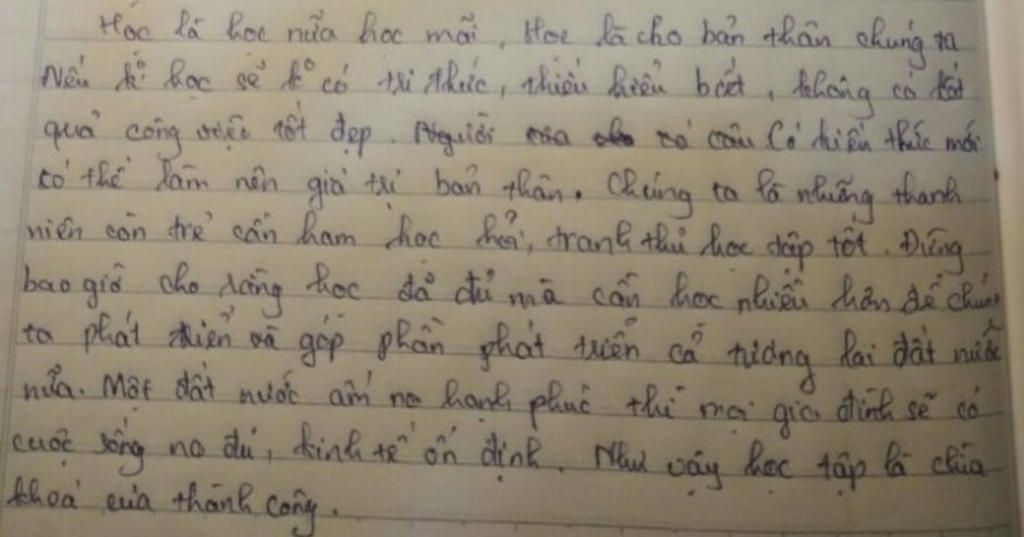 Học là học nữa học mãi, Học là cho bản thân chúng ta
Nếu k° học sẽ k° có tri thức, thiếu hiểu biết, không có kết
quả công việc tốt đẹp. Người có câu Có kiến thức mới
có thể làm nên giá trị bản thân. Chúng ta là những thanh
niên còn trẻ cần ham học hỏi, tranh thủ học tập tốt. Đừng
bao giờ cho rằng học đã đủ mà cần học nhiều hơn để chúng
ta phát triển và góp phần phát triển cả tương lai đất nước
nữa. Một đất nước ấm no hạnh phúc thì mọi gia đình sẽ có
cuộc sống no đủ, kinh tế ổn định. Như vậy học tập là chìa
khoá của thành công.